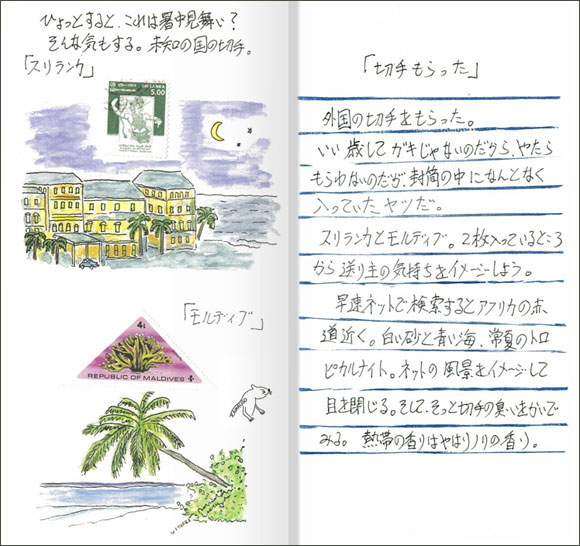 ひょっとすると、これは暑中見舞い?
そんな気もする。未知の国の切手。
「スリランカ」
SRI LANKA
5.00
「モルディブ」
4l
REPUBLIC OF MALDIVES
「切手もらった」
外国の切手をもらった。
いい歳してガキじゃないのだから、やたら
もらわないのだが、封筒の中になんとなく
入っていたヤツだ。
スリランカとモルディブ。2枚入っているところ
から送り主の気持ちをイメージしよう。
早速ネットで検索するとアフリカの赤
道近く。白い砂と青い海、常夏のトロ
ピカルナイト。ネットの風景をイメージして
目を閉じる。そして、そっと切手の臭いをかいで
みる。熱帯の香りはやはりノリの香り。